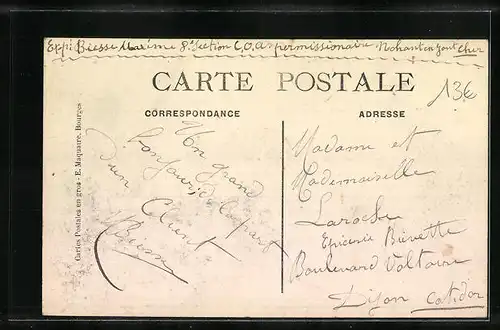 Exp: Biesse Maxime 8e Section C,O,A, permissionaire Nohant en Gout Cher
CARTE POSTALE
13€
CORRESPONDANCE
ADRESSE
Un grand
bonjour de la part
d'un Client
MBiesse
Madame et
Mademoiselle
Laroche
Epicerie Buvette
Boulevard Voltaire
Dijon Cotedor
Cartes Postales en gros - E. Maquaire, Bourges